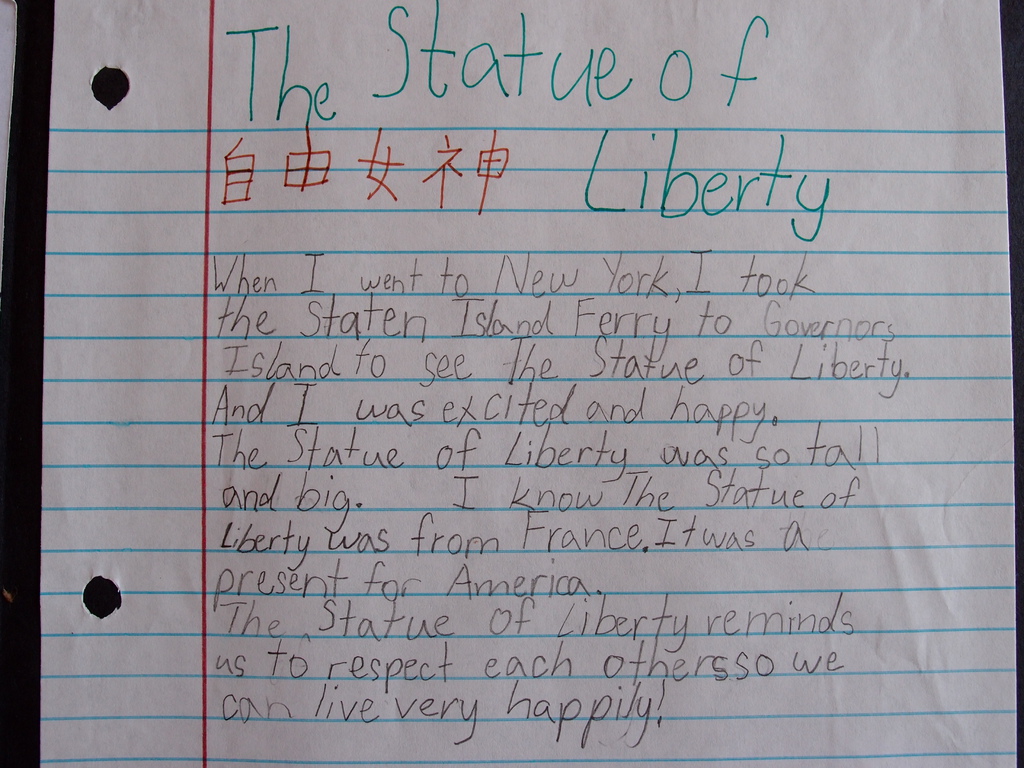 The Statue of
自由女神 Liberty
When I went to New York, I took
the Staten Island Ferry to Governors
Island to see the Statue of Liberty.
And I was excited and happy.
The Statue of Liberty was so tall
and big. I know The Statue of
Liberty was from France. It was a
present for America.
The Statue of Liberty reminds
us to respect each othersso we
can live very happily!